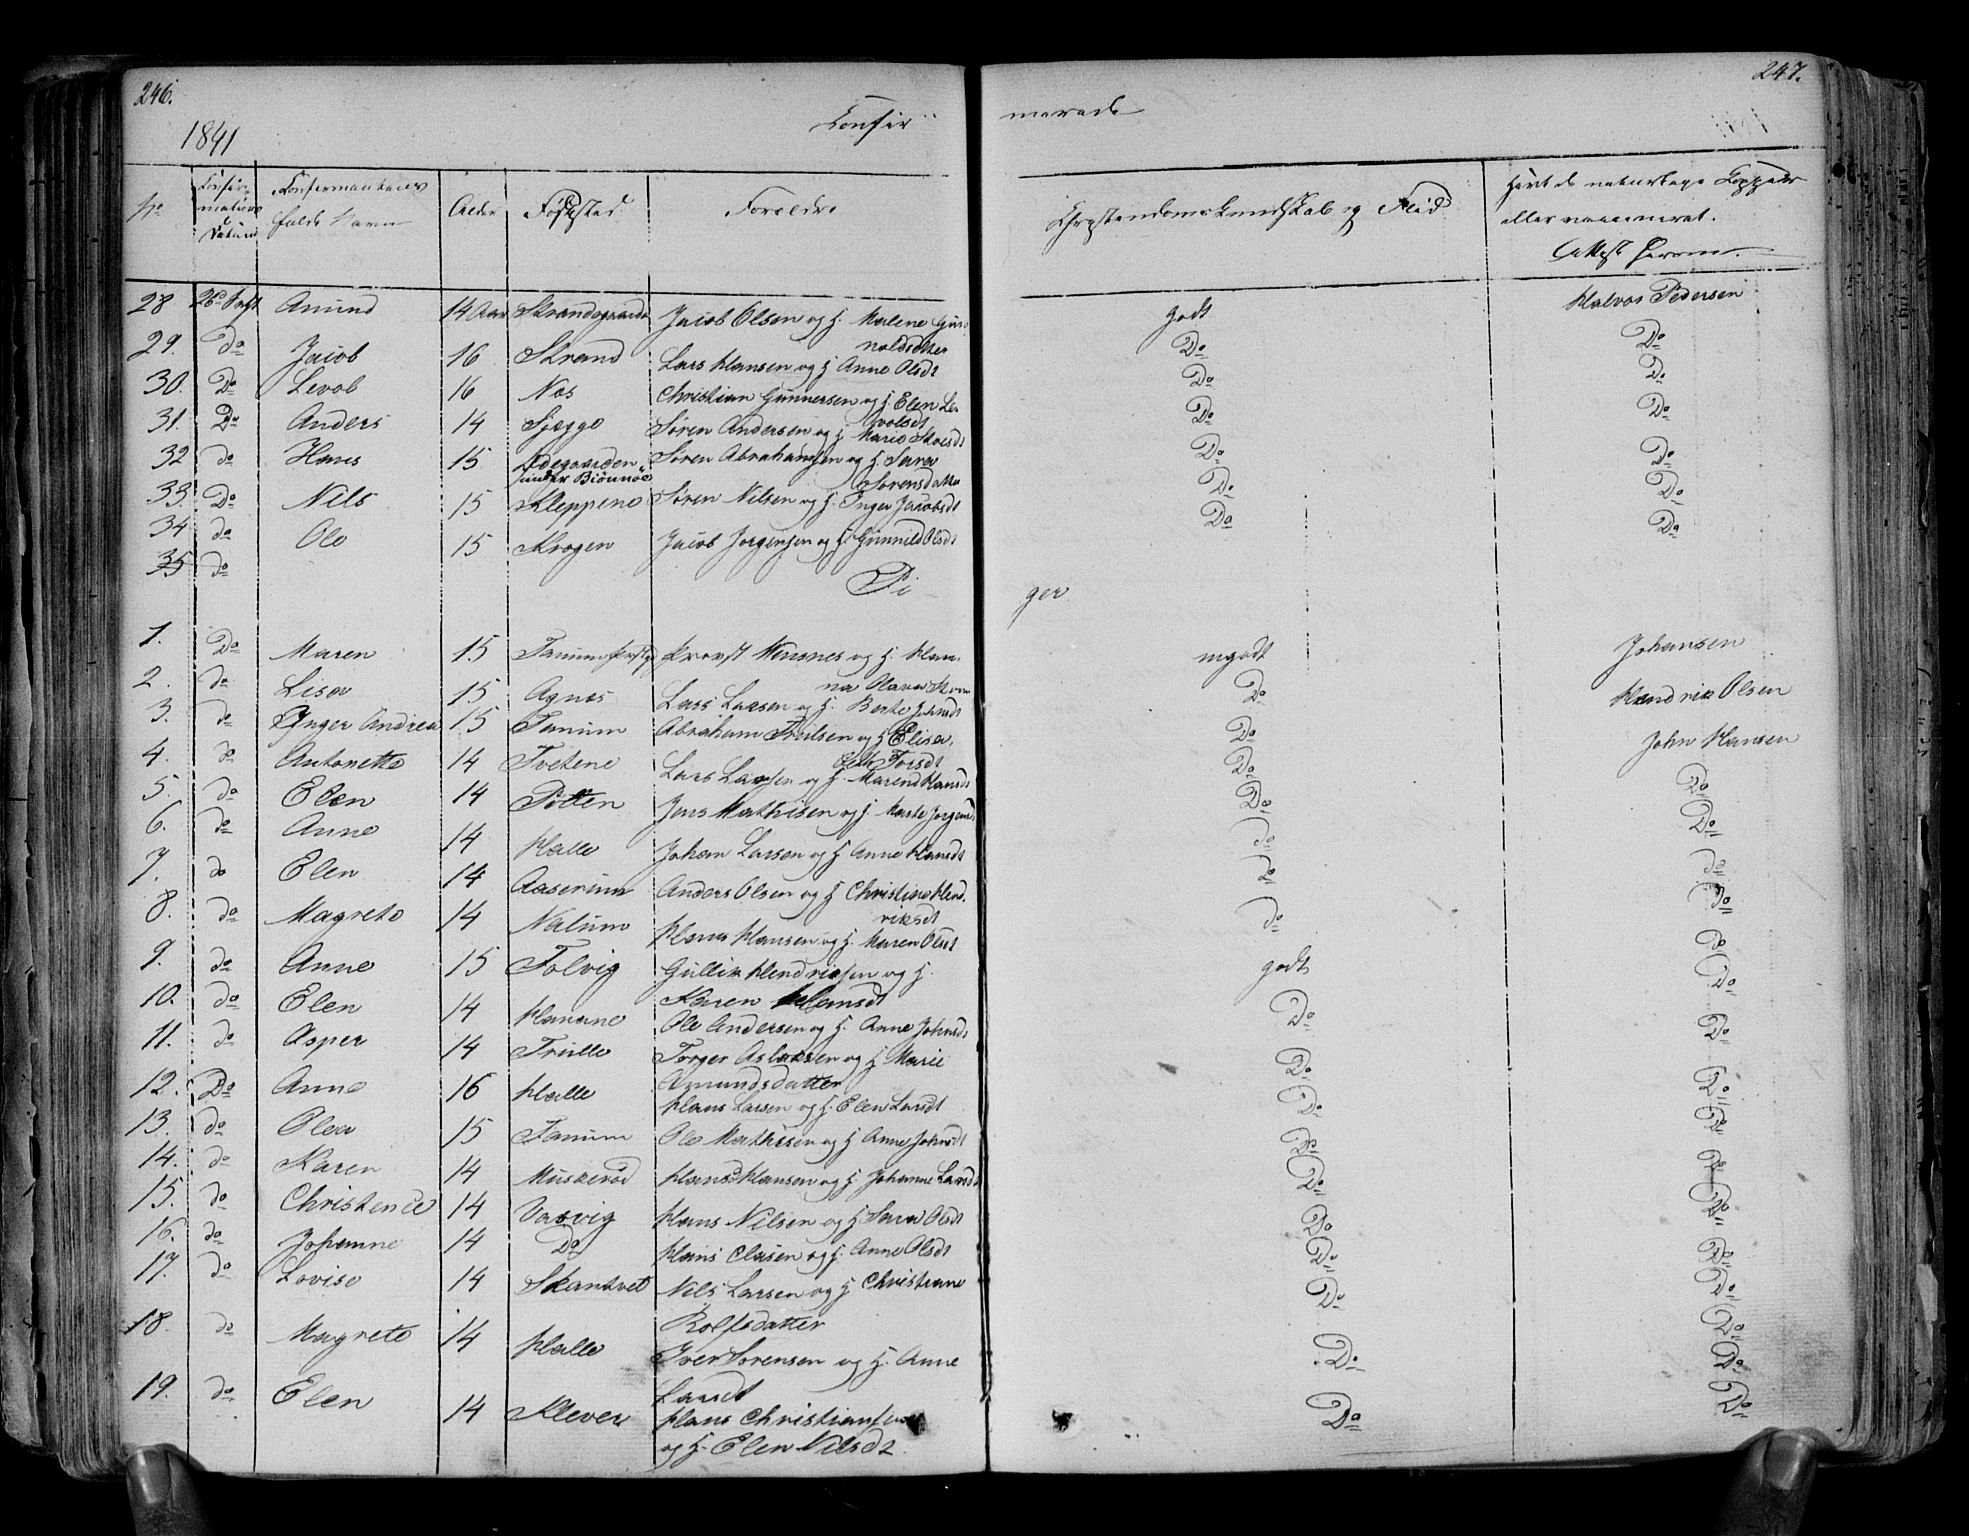 246.
247.
1841
Confir
merede
No
Confir-
mations
Datum
Confirmantens
fulde Navn
Alder
Fødested
Foreldre
Chrystendomskundskab og Flid
Havt de naturlige Kopper
eller vaccineret.
Attest herom
28 Amund 14 Aar Strandgaarden Jacob Olsen og H. Malene Gun- godt Halvor Pedersen
noldsdtter
29. do Jacob 16 Strand Lars Hansen og H. Anne Olsdt Do Do
30. Do Levol 16 Nes Christian Gunnersen og H. Elen Le- Do Do
volsdt
31. Do Anders 14 Sjegge Søren Andersen og H. Marie Do Do
32 do Hans 15 Ødegaarden Søren Abrahamsen og H. Sara Do Do
under Biønnøe Sørensdatter
33. Do Nils 15 Kleppene Søren Nilsen og H. Inger Jacobsdt Do Do
34 do Ole 15 Krogen Jacob Jørgensen og H. Gunnild Olsdt Do Do
35 do
Pi
ger
1. Do Maren 15 Tanum Provst og H. Han- mgodt Johansen
na Olava
2. do Lisa 15 Agnes Lars Larsen og H. Berte Johnsdt Do Hendrik Olsen
3. do Inger Andrea 15 Tanum Abraham Trulsen og H. Elisa- Do John Hansen
beth Torsdt
4. do Antonette 14 Tvetene Lars Larsen og H. Maren Hansdt Do Do
5. do Elen 14 Potten Jens Mathisen og H. Marte Jørgensd Do Do
6. do Anne 14 Halle Johan Larsen og H. Anne Hansdt do do
7. do Elen 14 Aaserum Anders Olsen og H. Christine Hend- do Do
riksdt
8. do Magrete 14 Nalum Hans Hansen og H. Maren Olsdt do do
9. do Anne 15 Tolvig Gullik Hendriksen og H. godt Do
Karen Hansdt
10. do Elen 14 Havane Ole Andersen og H. Anne Johnsdt Do Do
11. do Asper 14 Trulle Torger Aslaksen og H. Marie Do Do
Amundsdatter
12. Do Anne 16 Halle Hans Larsen og H. Elen Larsdt Do Do
13. do Olea 15 Tanum Ole Mathisen og H. Anne Johnsdt Do Do
14. do Karen 14 Muskerød Hans Hansen og H. Johanne Larsdt Do Do
15. do Christence 14 Vasvig Hans Nilsen og H. Sara Olsdt Do Do
16. do Johanne 14 Do Hans Clasen og H. Anne Olsdt Do Do
17. do Lovise 14 Skantvet Nils Larsen og H. Christiane Do Do
Rolfsdatter
18. do Magrete 14 Halle Iver Sørensen og H. Anne Do Do
Larsdt
19. do Elen 14 Klever Hans Christiansen Do Do
og H. Elen Nilsdt.